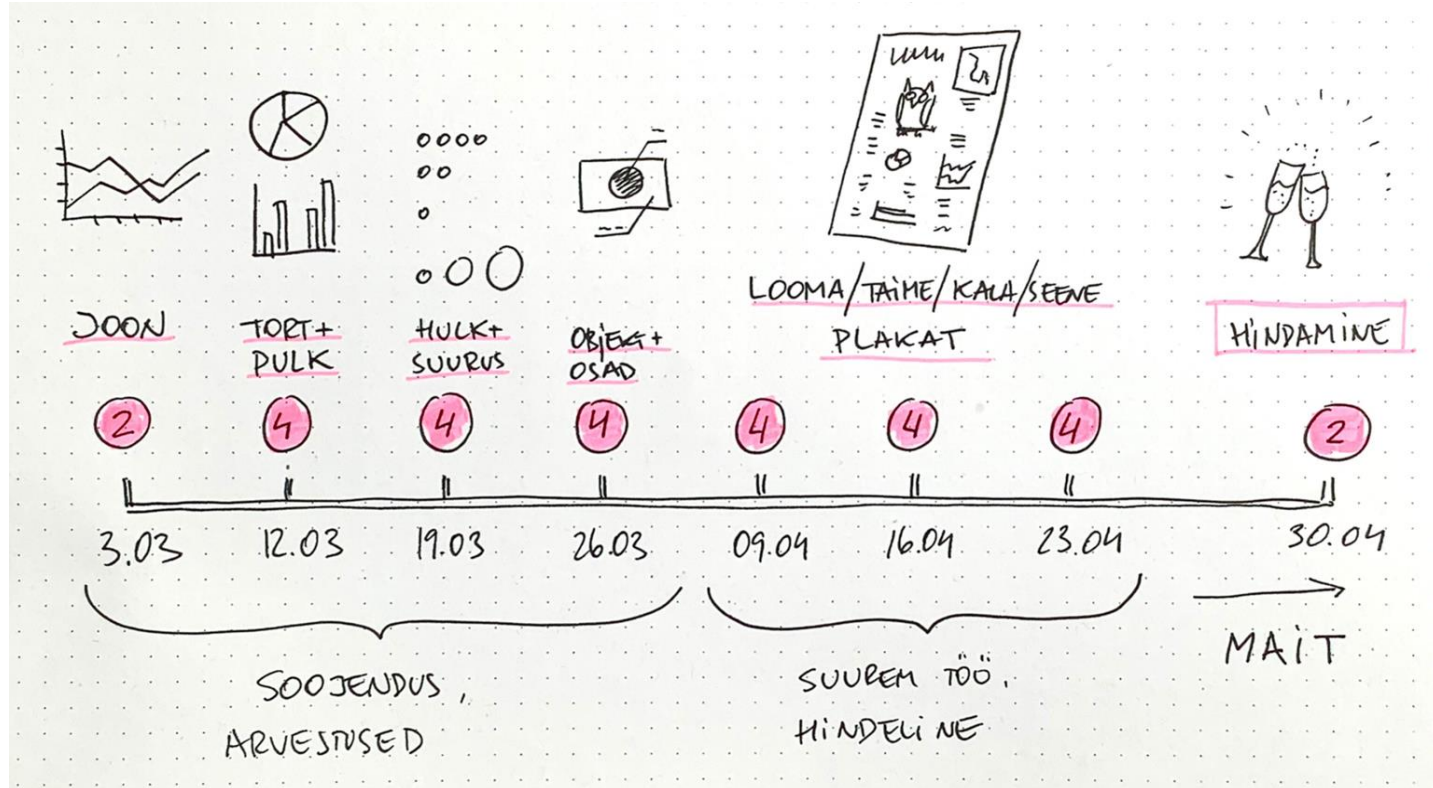 JOON
TORT+
PULK
HULK+
SUURUS
OBJEKT+
OSAD
LOOMA/TAIME/KALA/SEENE
PLAKAT
HINDAMINE
2
4
4
4
4
4
4
2
3.03
12.03
19.03
26.03
09.04
16.04
23.04
30.04
SOOJENDUS,
ARVESTUSED
SUUREM TÖÖ,
HINDELINE
MAIT